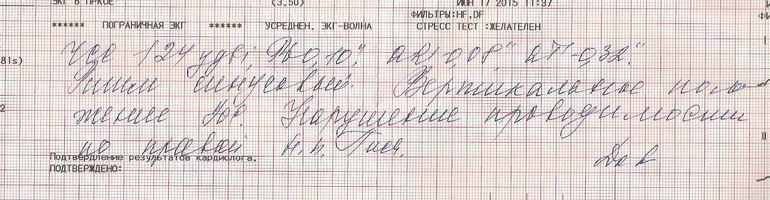 ЭКГ В ПРКОЕ (3,50) ИЮН 17 2015 11:37
ФИЛЬТРЫ:HF,DF
****** ПОГРАНИЧНАЯ ЭКГ ****** УСРЕДНЕН. ЭКГ-ВОЛНА СТРЕСС ТЕСТ :ЖЕЛАТЕЛЕН
81s)
ЧСС 124 уд в 1', PQ 0,10", QRS 0,08", QT-0,32".
Ритм синусовый. Вертикальное поло
жение ЭОС. Нарушение проводимости
по правой н.п. Гиса.
Подтвердление результатов кардиолога.
ПОДТВЕРЖДЕНО:
II